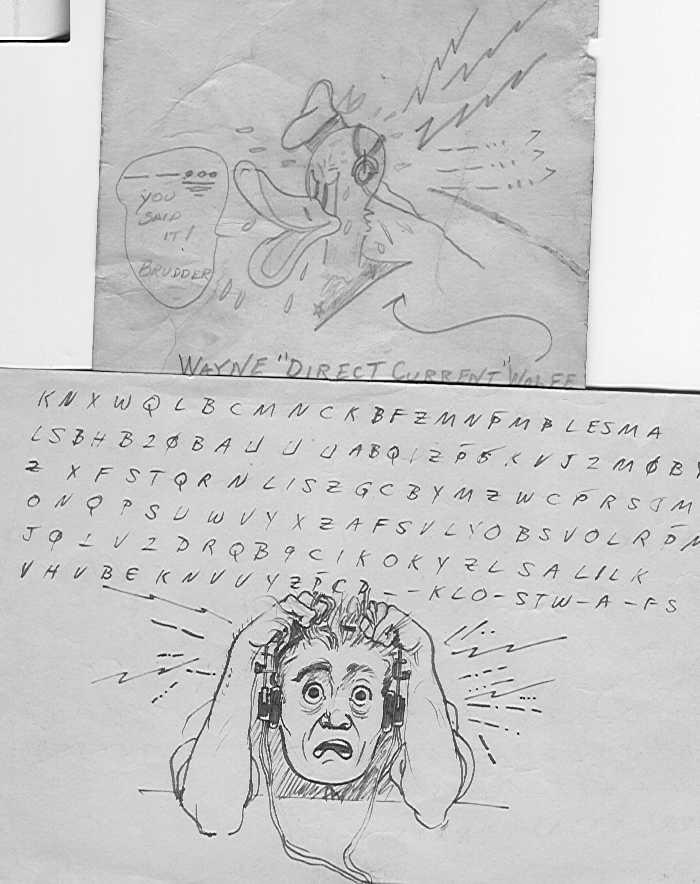 YOU
SAID
IT!
BRUDDER
WAYNE "DIRECT CURRENT" WOLFE
K N X W Q L B C M N C K B F Z M N P M B L E S M A
L S B H B 2 Ø B A U U U A B Q I Z P B K V J 2 M Ø B Y
Z X F S T Q R N L I S Z G C B Y M Z W C P R S J M
O N Q P S U W V Y X Z A F S V L Y O B S V O L R P M
J Q 1 V 2 D R Q B 9 C I K O K Y Z L S A L I L K
V H V B E K N V U Y Z P C D - - K L O - S T W - A - F S